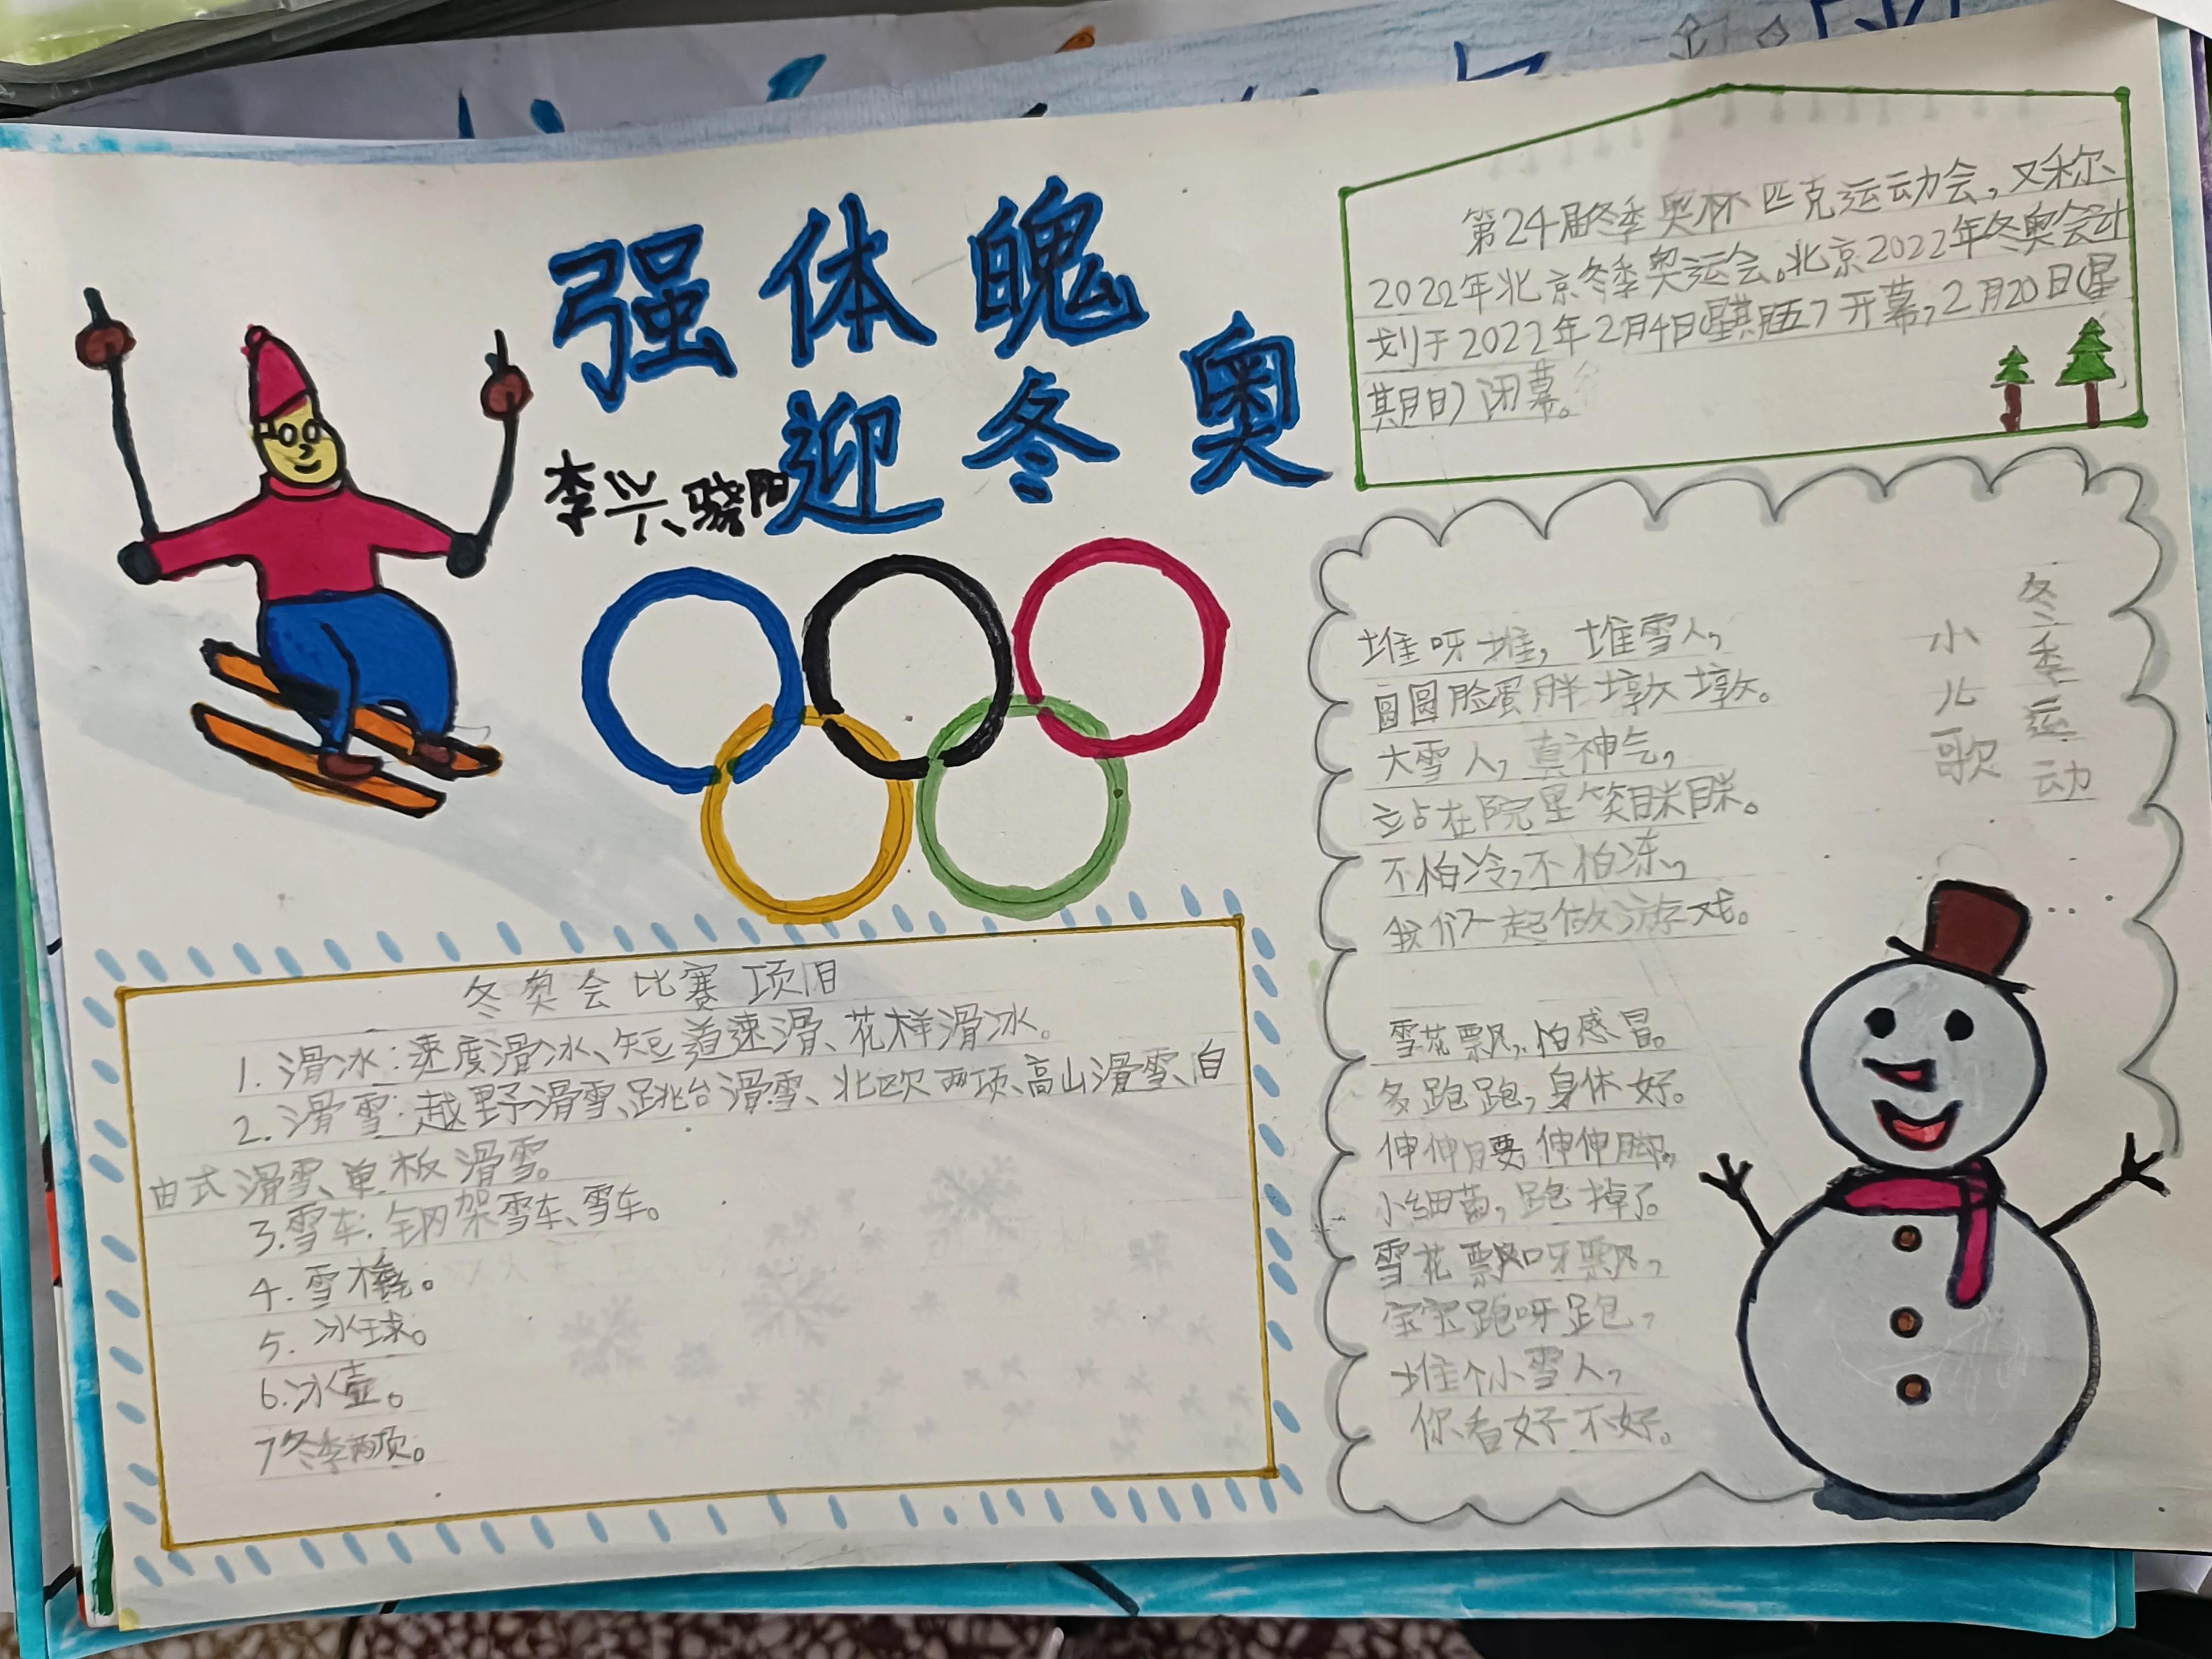 强体魄
迎冬奥
李兴骁阳
第24届冬季奥林匹克运动会,又称
2022年北京冬季奥运会。北京2022年冬奥会计
划于2022年2月4日(星期五)开幕,2月20日(星
期日)闭幕。
冬季运动
小儿歌
堆呀堆,堆雪人,
圆圆脸蛋胖墩墩。
大雪人,真神气,
站在院里笑眯眯。
不怕冷,不怕冻,
我们一起做游戏。
雪花飘,怕感冒。
多跑跑,身体好。
伸伸腰,伸伸脚,
小细菌,跑掉了。
雪花飘呀飘,
宝宝跑呀跑,
堆个小雪人,
你看好不好。
冬奥会比赛项目
1.滑冰:速度滑冰、短道速滑、花样滑冰。
2.滑雪:越野滑雪、跳台滑雪、北欧两项、高山滑雪、自
由式滑雪、单板滑雪。
3.雪车:钢架雪车、雪车。
4.雪橇。
5.冰球。
6.冰壶。
7冬季两项。